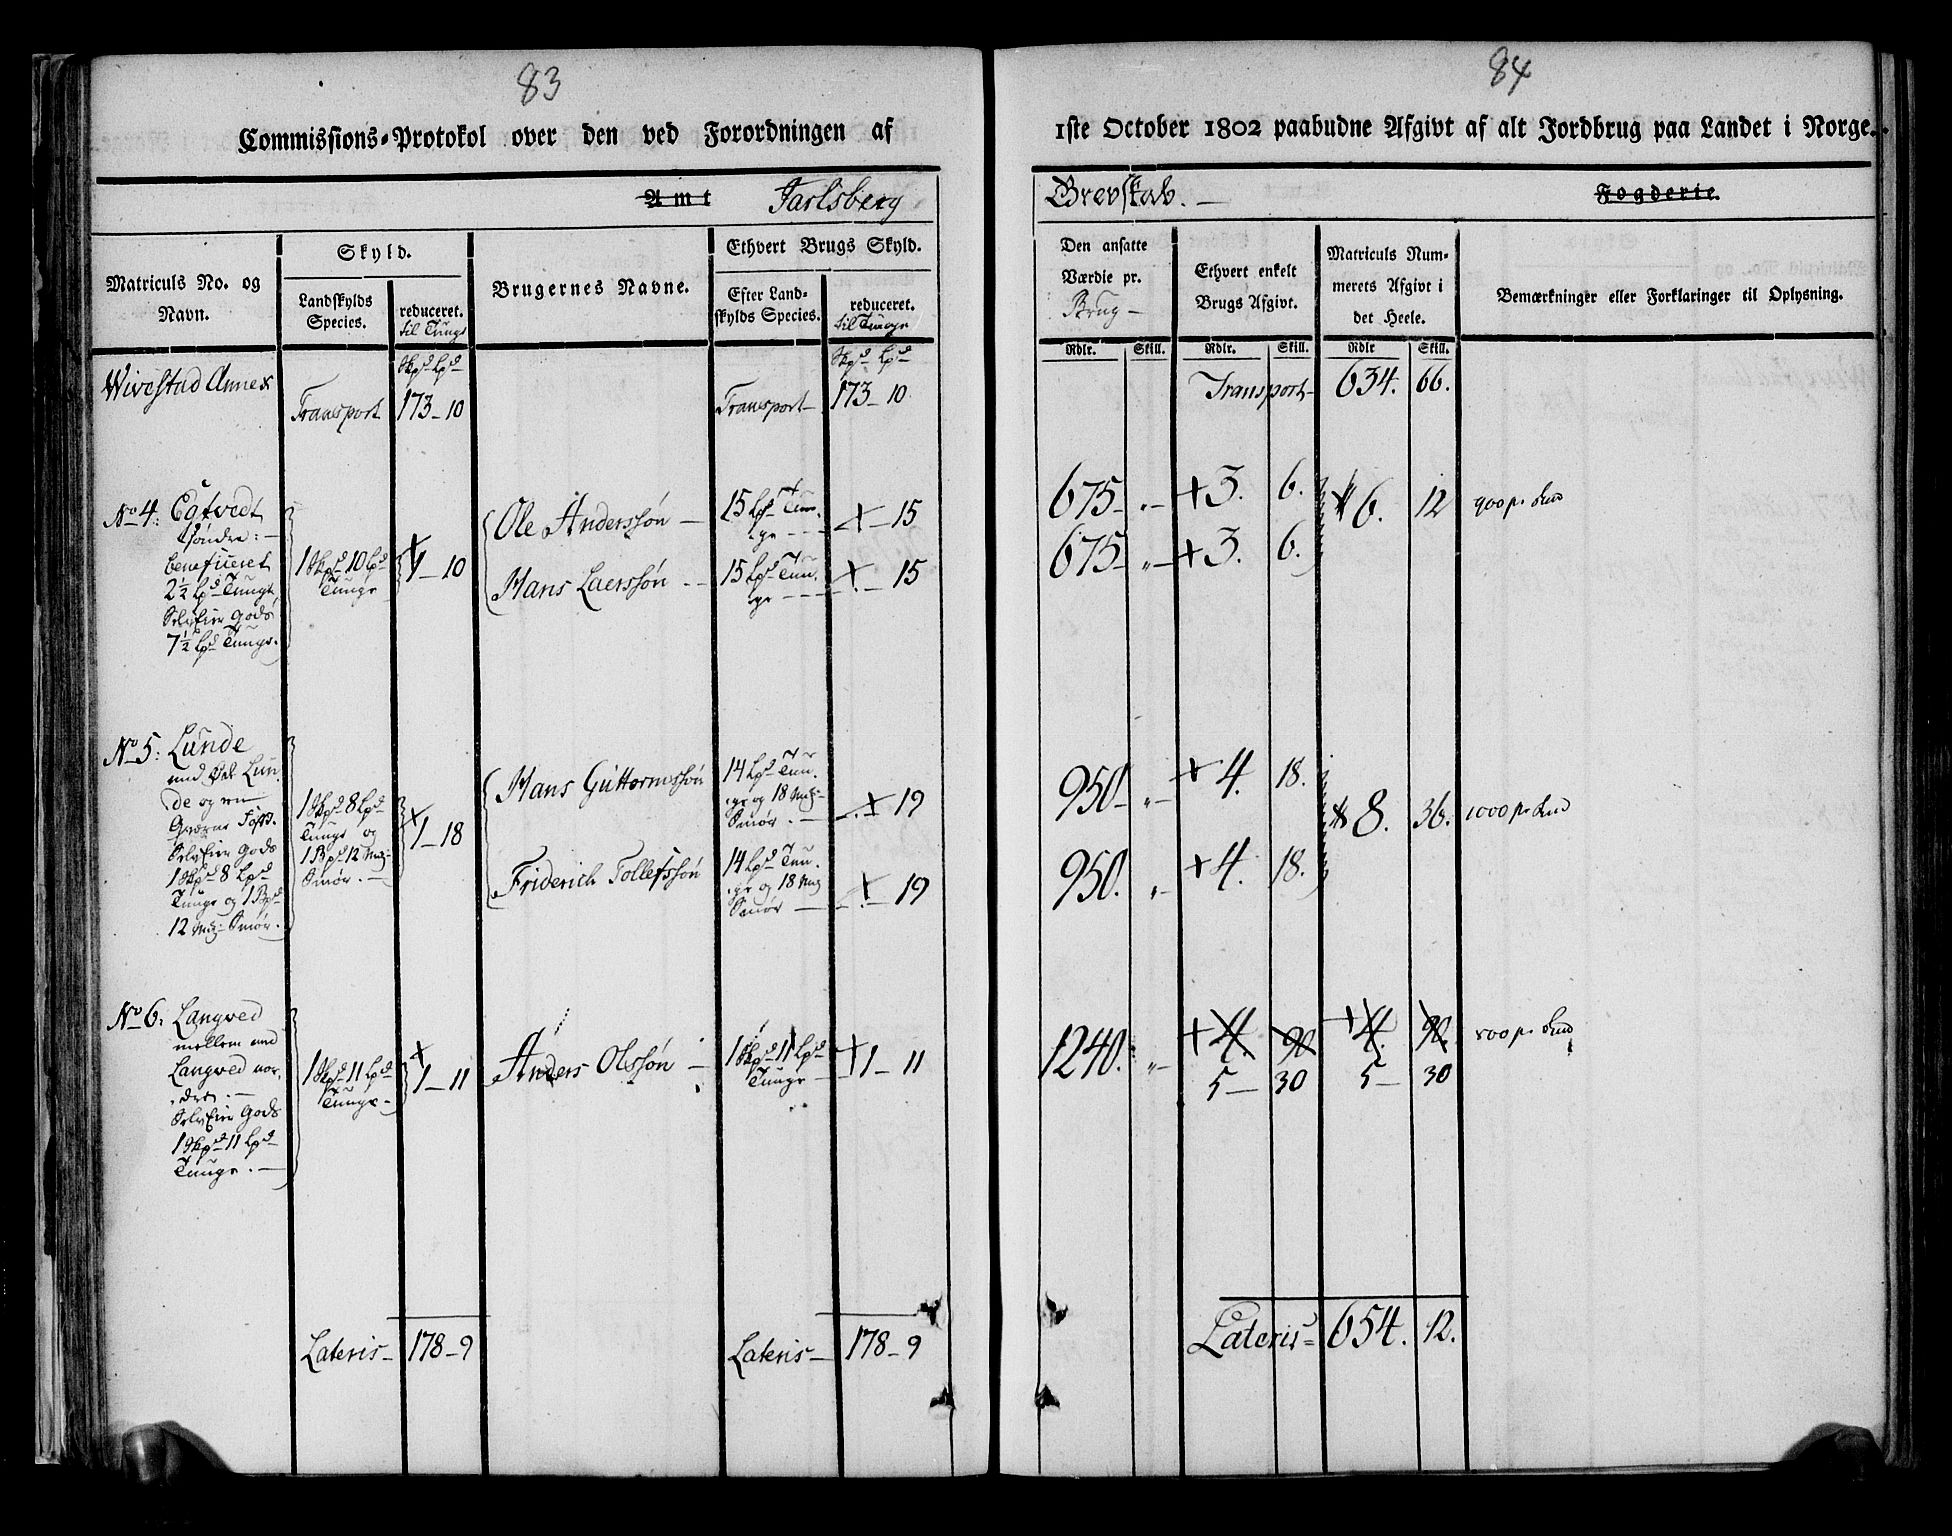 83
Commissions=Protokol over den ved Forordningen af
Amt Jarlsberg
Matriculs No. og
Navn.
Skyld.
Landskylds
Species.
reduceret.
til Tunge
Brugernes Navne.
Ethvert Brugs Skyld.
Efter Land=
skylds Species.
reduceret.
til Tunge
Wivestad Annex
Skpd Lpd
Transport 173-10
Transport
Skpd Lpd
173-10.
No 4: Egtvedt
søndre: —
beneficeret
2½ Lpd Tunge,
Selveier Gods
7½ Lpd Tunge.
1 Skpd 10 Lpd
Tunge
1-10
Ole Anderssøn —
15 Lpd Tun.
ge
15
Hans Laerssøn
15 Lpd Tun.
ge
15
No 5: Lunde
med Lun.
de og en
Selveier Gods
1 Skpd 8 Lpd
Tunge og 1 Bpd
12 Mrk: Smør.
1 Skpd 8 Lpd
Tunge og
1 Bpd 12 Mrk:
Smør. —
1-18
Hans Guttormssøn
14 Lpd Tun.
ge og 18 Mrk:
Smør. —
19
Friderich Tollefssøn
14 Lpd Tun.
ge og 18 Mrk
Smør —
19
No 6: Langved
mellem med
Langved nor.
dre. —
Selveier Gods
1 Skpd 11 Lpd
Tunge. —
1 Skpd 11 Lpd
Tunge.
1-11
Anders Olssøn —
1 Skpd 11 Lpd
Tunge —
1-11
Lateris— 178-9
Lateris— 178-9
84
1ste October 1802 paabudne Afgivt af alt Jordbrug paa Landet i Norge.
Grevskab. — Fogderie.
Den ansatte
Værdie pr.
Brug —
Rdlr. Skill.
Ethvert enkelt
Brugs Afgivt.
Rdlr. Skill.
Matriculs Num=
merets Afgivt i
det Heele.
Rdlr Skill.
Bemærkninger eller Forklaringer til Oplysning.
Transport— 634. 66.
675 - „ - + 3. 6.
6. 12 900 pr.
675 - „ - + 3. 6.
950 - „ - + 4. 18.
8. 36. 1000 pr.
950. „ - + 4. 18.
1240. „ - + 4. 90 + 4. 90. 800 pr.
5— 30 5— 30
Lateris= 654. 12.